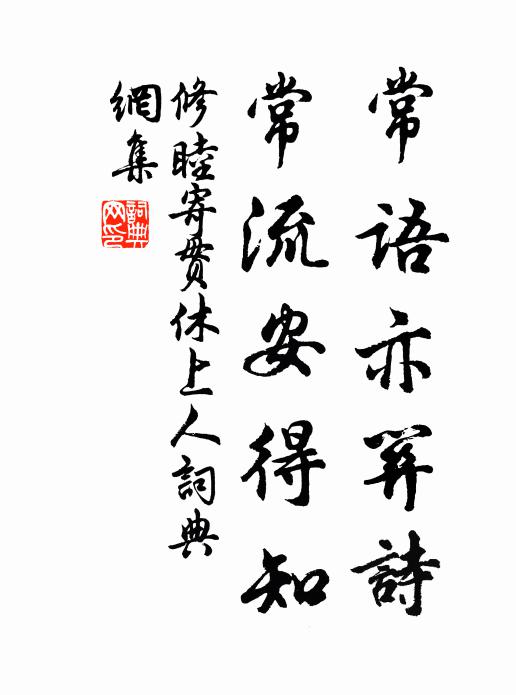 常語亦關詩
常流安得知
修睦寄貫休上人詞典
網集
詞典
网印